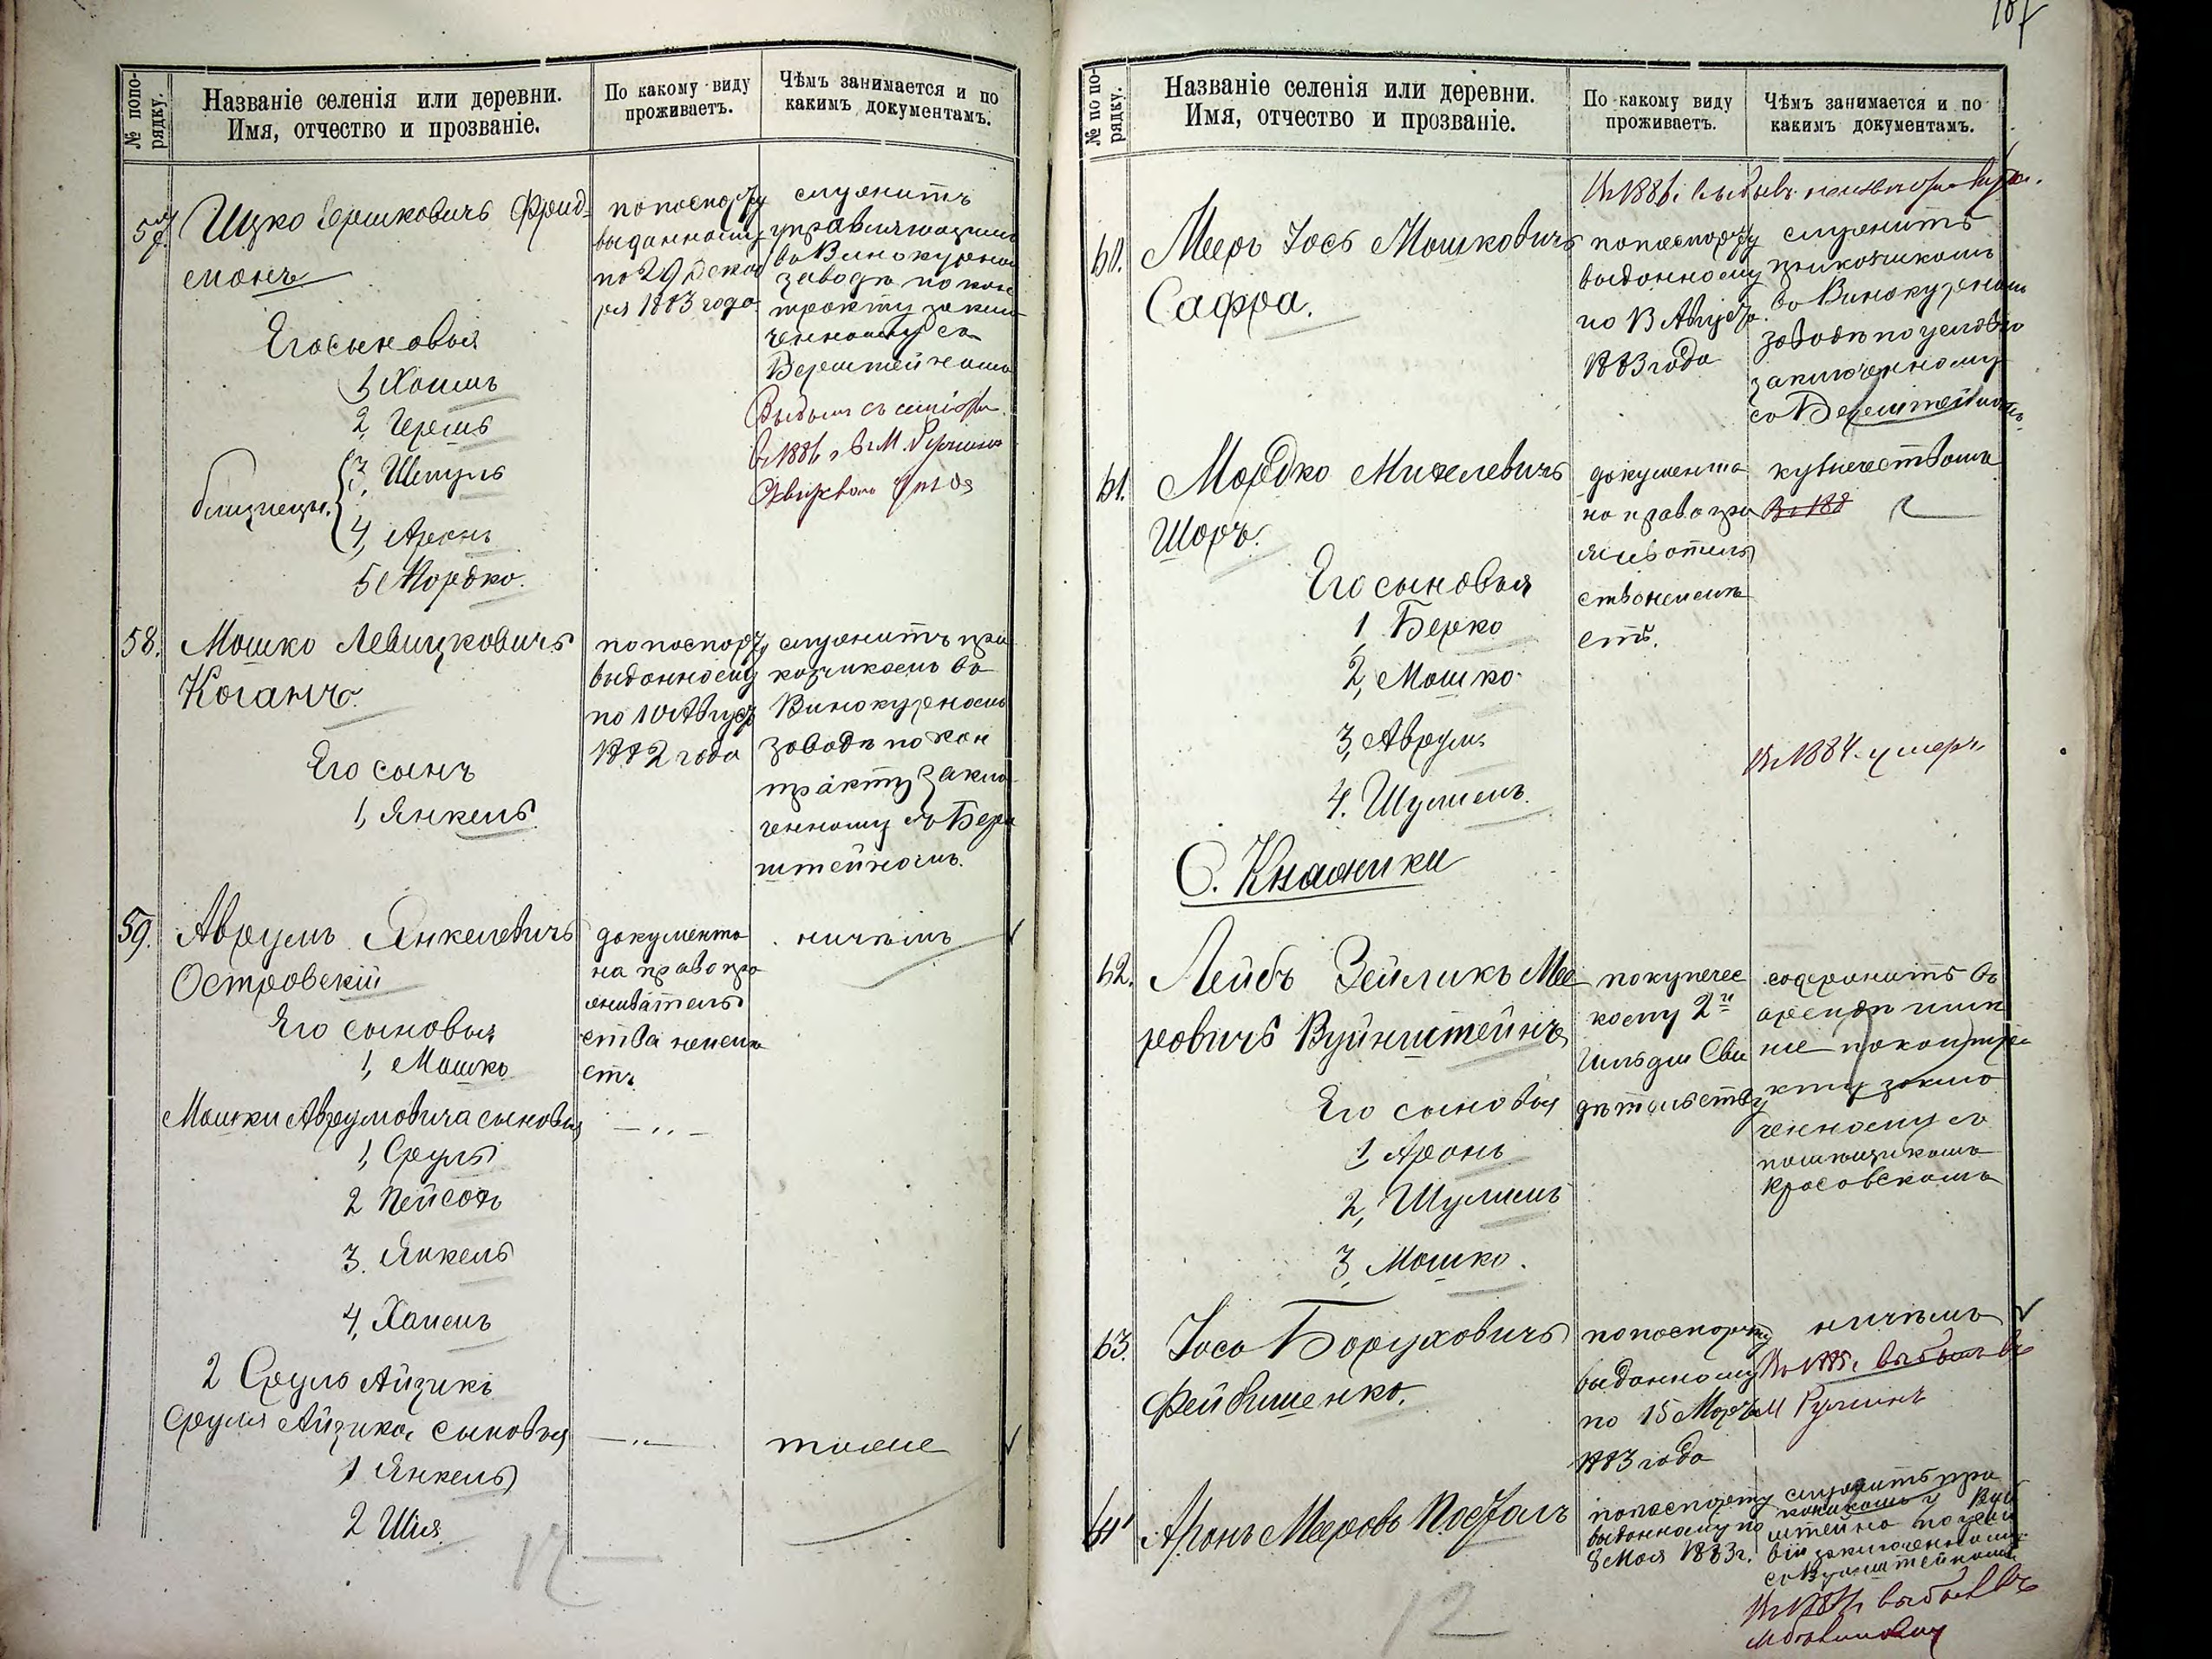 № попо-
рядку.
Названіе селенія или деревни.
Имя, отчество и прозваніе.
По какому виду
проживаетъ.
Чѣмъ занимается и по
какимъ документамъ.
57.
Ицко Гершковичъ Фрид-
манъ
Его сыновья
1, Хаимъ
2, Гершъ
близнецы.
3, Шмуль
4, Аронъ
5 Мордко.
по паспорту
выданному
по 29 Декаб
ря 1883 года
служитъ
управляющимъ
въ Винокурномъ
заводѣ по кон
тракту заклю
ченному съ
Бернштейномъ
Выбылъ съ
въ 1886 г. въ М. Ружинъ
Сквирскаго уѣзда
58.
Мошко Левицковичъ
Коганъ.
Его сынъ
1, Янкель
по паспорту
выданному
по 10 Августа
1882 года
служитъ при
кащикомъ въ
Винокурномъ
заводѣ по кон
тракту заклю
ченному съ Берн
штейномъ.
59.
Аврумъ Янкелевичъ
Островскій
Его сыновья
1, Мошко
Мошки Аврумовича сыновья
1, Сруль
2 Пейсахъ
3. Янкель
4, Хаимъ
2 Сруль Айзикъ
Сруля Айзика сыновья
1 Янкель
2 Шія.
документа
на право про
живатель
ства неимѣ
етъ
— „ —
— „ —
ничѣмъ
тоже
12
187
№ по по-
рядку.
Названіе селенія или деревни.
Имя, отчество и прозваніе.
По какому виду
проживаетъ.
Чѣмъ занимается и по
какимъ документамъ.
Въ 1886 г. выбылъ
60.
Мееръ Іось Мошковичъ
Сафра.
по паспорту
выданному
по 13 Августа
1883 года
служитъ
прикащикомъ
въ Винокурномъ
заводѣ по условію
заключенному
съ Бернштейномъ
61.
Мордко Михелевичъ
Шоръ.
Его сыновья
1, Берко
2, Мошко
3, Аврумъ
4. Шулимъ.
документа
на право про
живатель
ства неимѣ
етъ.
купечествомъ
Въ 188
Въ 1884 г. умеръ
С. Княжики
62.
Лейбъ Зейликъ Мее
ровичъ Вуйнштейнъ
Его сыновья
1, Аронъ
2, Шулимъ
3, Мошко.
по купечес
кому 2й
Гильдіи Сви
дѣтельству
содержитъ въ
арендѣ имѣ
ніе по контра
кту заклю
ченному съ
помѣщикомъ
Красовскимъ
63.
Іось Боруховичъ
Фейвишенко.
по паспорту
выданному
по 15 Марта
1883 года
ничѣмъ
Въ 1885 г. выбылъ въ
М Ружинъ
64
Аронъ Мееровъ Постолъ
по паспорту
выданному по
8 Мая 1883 г.
служитъ при
кащикомъ у Вуй
штейна по усло
вію заключенному
съ Вуйнштейномъ
выбылъ въ
12